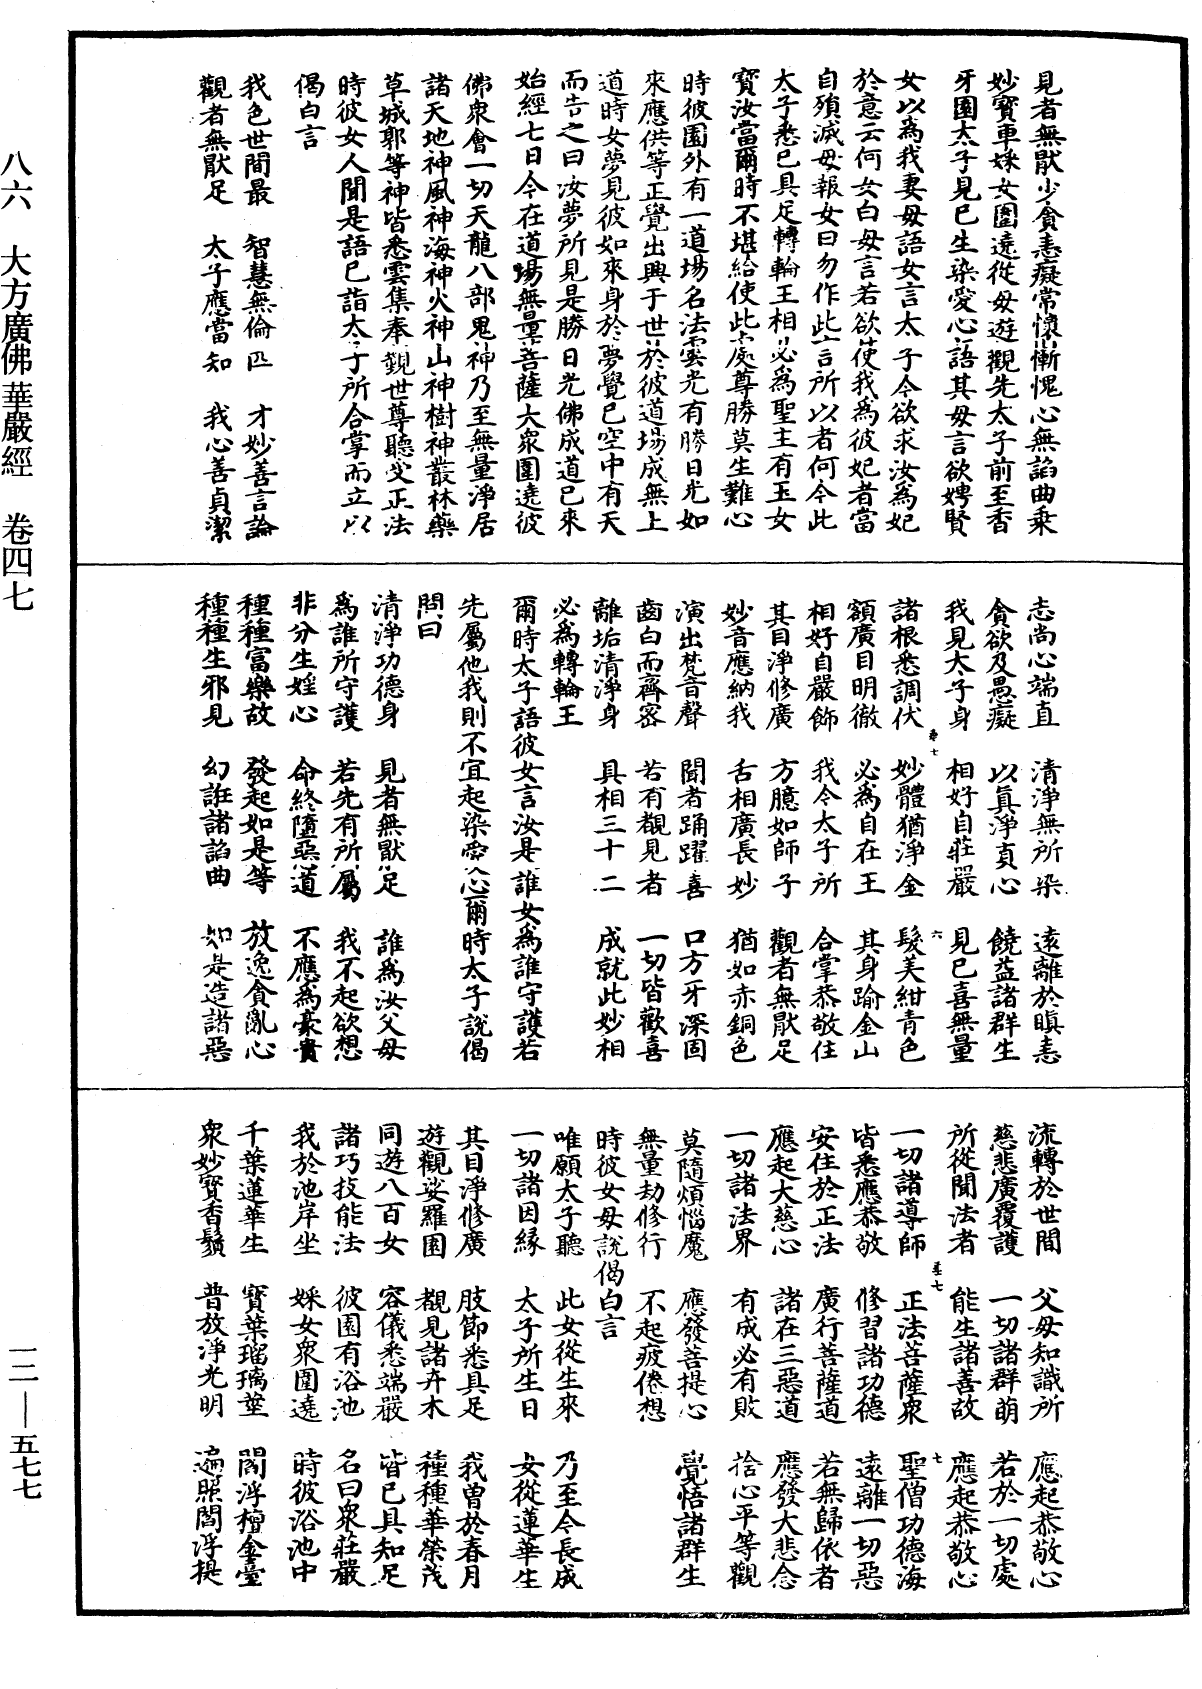 八六　大方廣佛華嚴經　卷四七
一二—五七七
見者無猒少貪恚癡常懷慚愧心無諂曲乗
妙寳車婇女圍遶從母遊觀先太子前至香
牙園太子見已生染愛心語其母言欲娉賢
女以為我妻母語女言太子今欲求汝為妃
於意云何女白母言若欲使我為彼妃者當
自殞滅母報女曰勿作此言所以者何今此
太子悉已具足轉輪王相必為聖主有玉女
寳汝當爾時不堪給使此處尊勝莫生難心
時彼園外有一道場名法雲光有勝日光如
來應供等正覺出興于世於彼道場成無上
道時女夢見彼如來身於夢覺已空中有天
而告之曰汝夢所見是勝日光佛成道已來
始經七日今在道場無量菩薩大衆圍遶彼
佛衆會一切天龍八部鬼神乃至無量淨居
諸天地神風神海神火神山神樹神叢林藥
草城郭等神皆悉雲集奉覲世尊聽受正法
時彼女人聞是語已詣太子所合掌而立以
偈白言
我色世間最　智慧無倫匹　才妙善言論
觀者無猒足　太子應當知　我心善貞潔
志尚心端直　清淨無所染　遠離於瞋恚
貪欲及愚癡　以眞淨直心　饒益諸群生
我見太子身　相好自莊嚴　見已喜無量
諸根悉調伏　妙體猶淨金　髮美紺青色
額廣目明徹　必為自在王　其身踰金山
相好自嚴飾　我今太子所　合掌恭敬住
其目淨修廣　方臆如師子　觀者無猒足
妙音應納我　舌相廣長妙　猶如赤銅色
演出梵音聲　聞者踊躍喜　口方牙深固
齒白而齊密　若有覩見者　一切皆歡喜
離垢清淨身　具相三十二　成就此妙相
必為轉輪王
爾時太子語彼女言汝是誰女為誰守護若
先屬他我則不宜起染愛心爾時太子說偈
問曰
清淨功德身　見者無猒足　誰為汝父母
為誰所守護　若先有所屬　我不起欲想
非分生婬心　命終墮惡道　不應為豪貴
種種富樂故　發起如是等　放逸貪亂心
種種生邪見　幻誑諸諂曲　如是造諸惡
流轉於世間　父母知識所　應起恭敬心
慈悲廣覆護　一切諸群萌　若於一切處
所從聞法者　能生諸善故　應起恭敬心
一切諸導師　正法菩薩衆　聖僧功德海
皆悉應恭敬　修習諸功德　遠離一切惡
安住於正法　廣行菩薩道　若無歸依者
應起大慈心　諸在三惡道　應發大悲念
一切諸法界　有成必有敗　捨心平等觀
莫隨煩惱魔　應發菩提心　覺悟諸群生
無量劫修行　不起疲倦想
時彼女母說偈白言
唯願太子聽　此女從生來　乃至今長成
一切諸因緣　太子所生日　女從蓮華生
其目淨修廣　肢節悉具足　我曾於春月
遊觀娑羅園　覩見諸卉木　種種華榮茂
同遊八百女　容儀悉端嚴　皆已具知足
諸巧技能法　彼園有浴池　名曰衆莊嚴
我於池岸坐　婇女衆圍遶　時彼浴池中
千葉蓮華生　寳葉瑠璃莖　閻浮檀金臺
衆妙寳香鬚　普放淨光明　遍照閻浮提